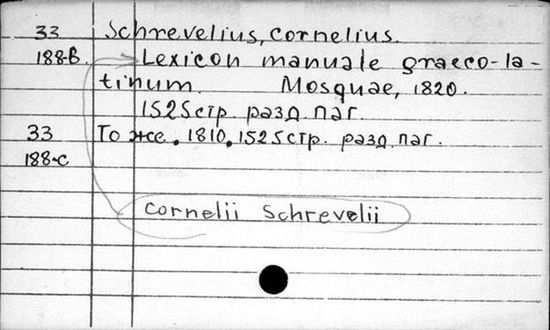 33 Schrevelius, Cornelius.
188-B Lexicon manuale graeco-la-
tinum. Mosquae, 1820.
1525 стр. разд. паг.
33 То же. 1810. 1525 стр. разд. паг.
188-C
Cornelii Schrevelii